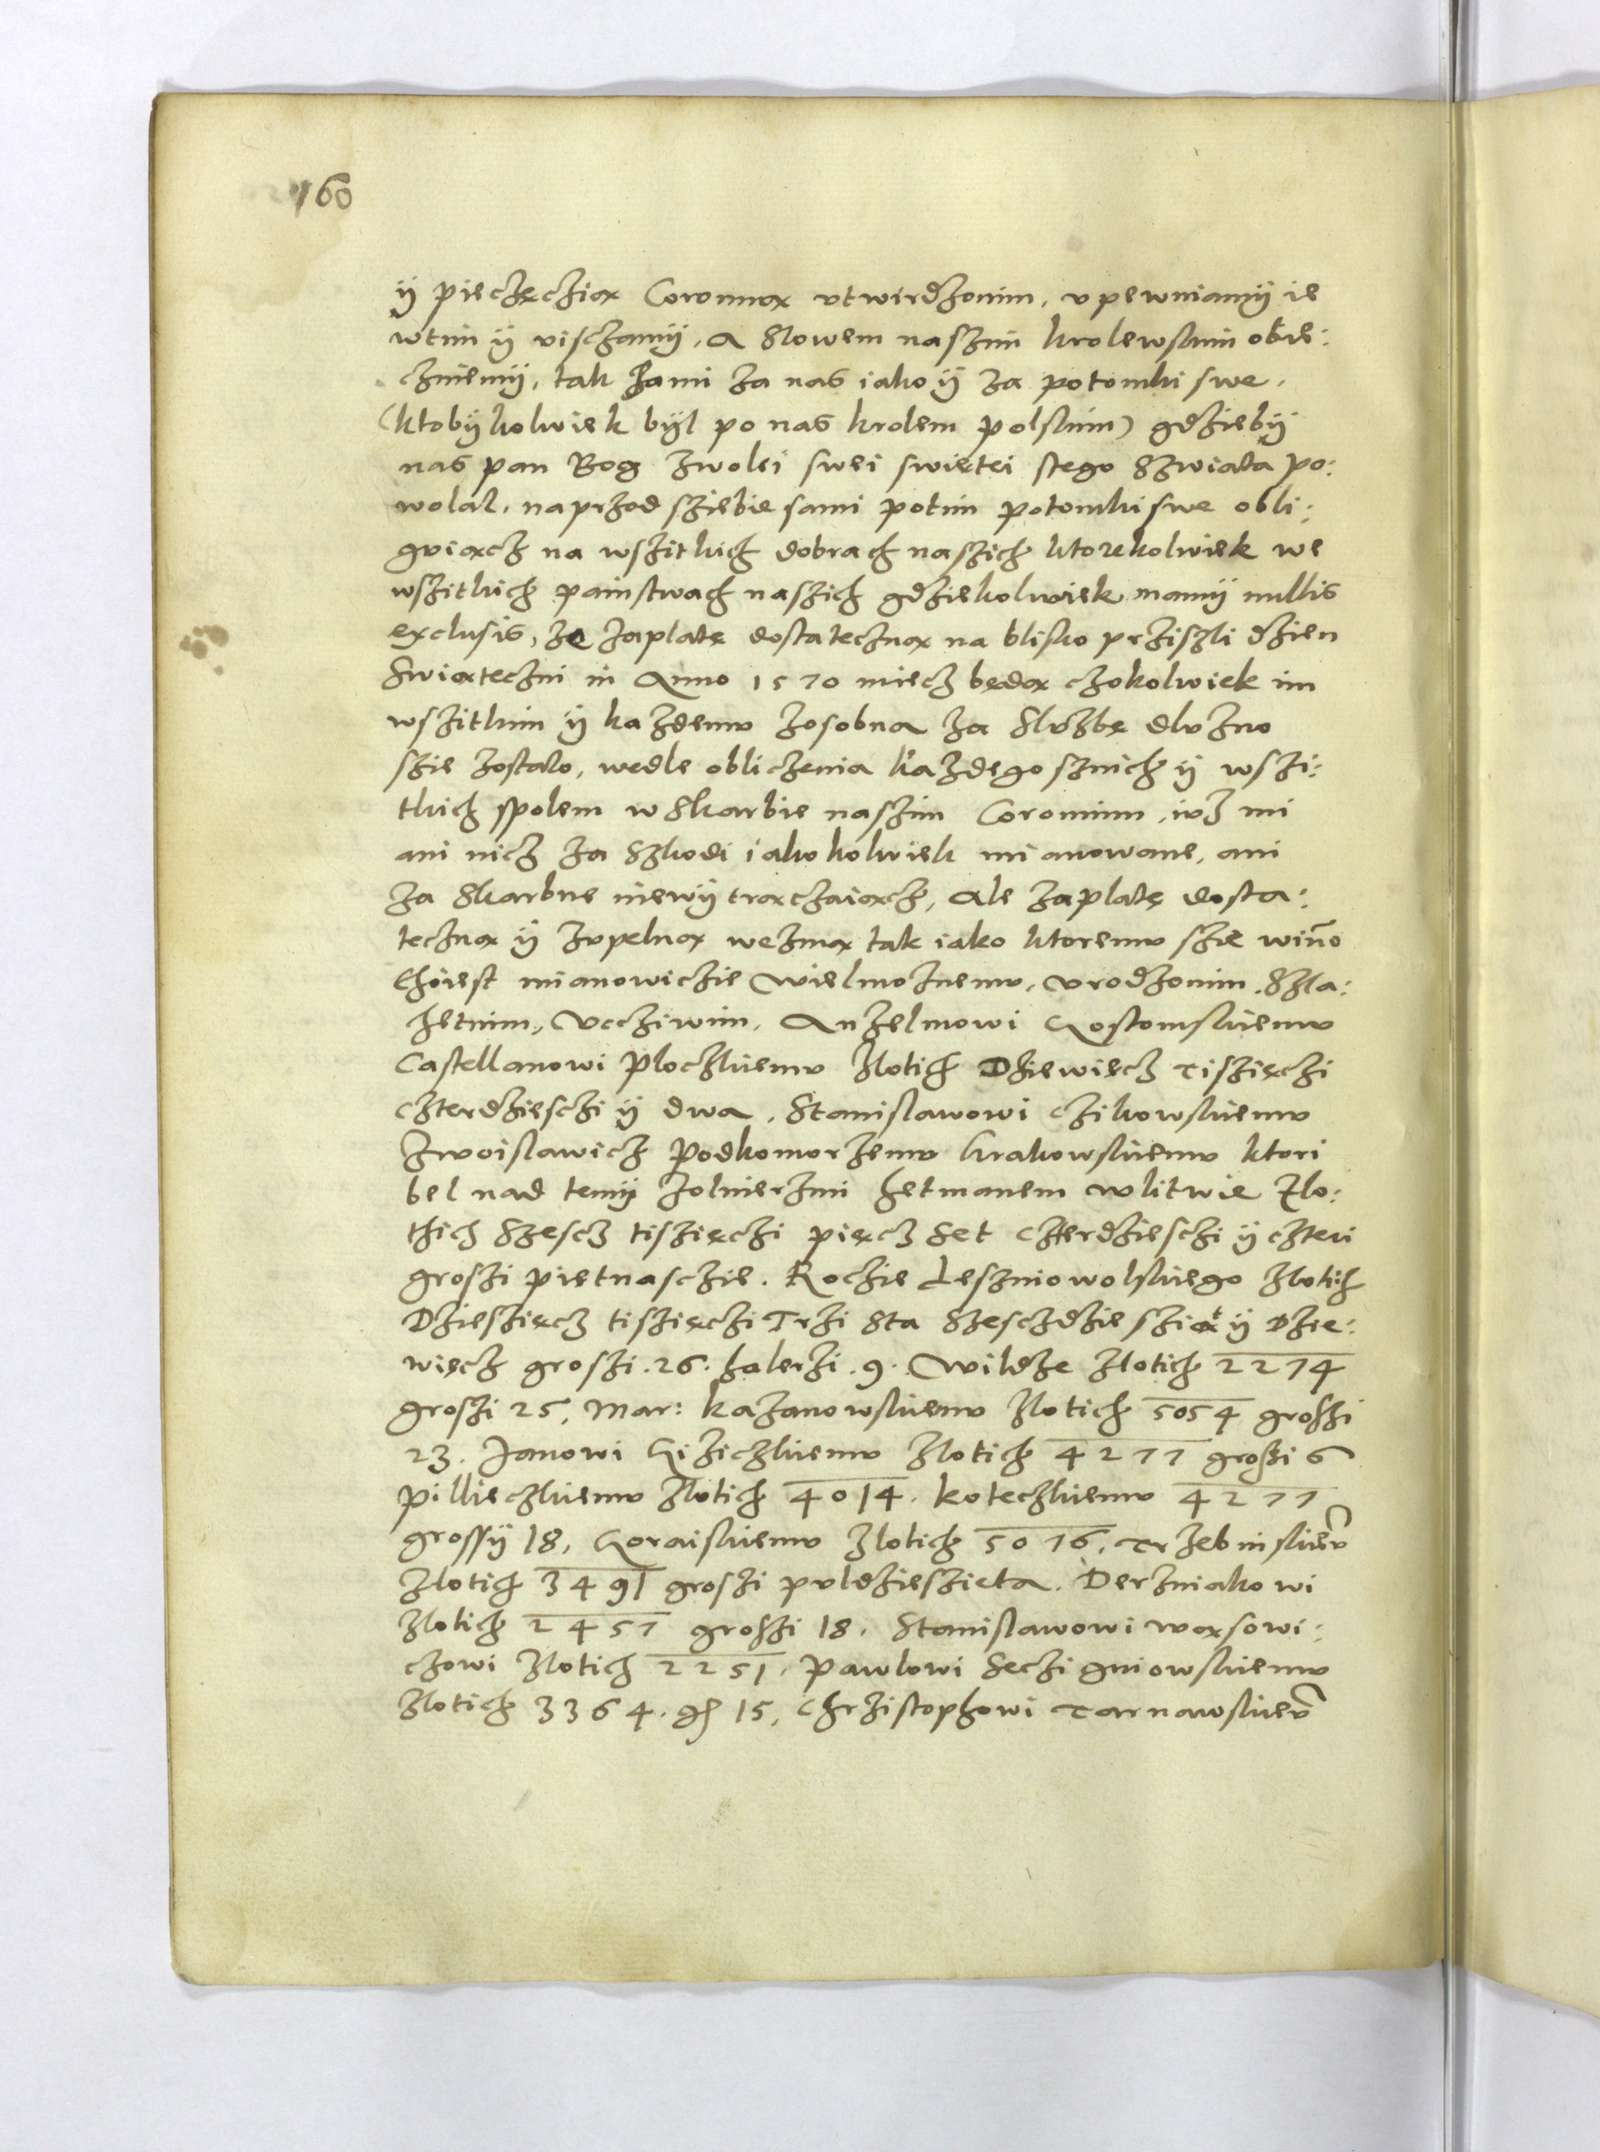 160
ÿ pieczęcziox Coronnox vtwirdzonim, vpewniamÿ ie
wtim ÿ visczamÿ, A Slowem naszim krolewskim obie:
cznięmÿ, tak sami za nas iako ÿ za potomki swe,
(ktobÿkolwiek bÿl po nas krolem polskim) gdziebÿ
nas pan Bog zwolei swei swiętei stego Szwiata po:
wolal, naprzod sziebie sami potim potomki swe obli:
gvioxcz na wszitkich dobrach naszich ktorekolwiek we
wszitkich painstwach naszich gdziekolwiek mamÿ nullis
exclusis, Ze zaplatę dostatecznox na blisko prziszli dzien
Swioxteczni in Anno 1570 miecz będox czokolwiek im
wszitkim ÿ kazdemv zosobna za Slvzbę dlvzno
szie zostalo, wedle obliczenia kazdego sznich ÿ wszi:
tkich spolem wSkarbie naszim Coronnim, ivz mi
ani nicz za Szkodi iakokolwiek mianowane, ani
za Skarbne niewÿtroxczaioxcz, Ale zaplatę dosta:
tecznox ÿ zvpelnox wezmox tak iako ktoremv szie winno
thoiest mianowiczie Wielmoznemv, vrodzonim, Szla:
hetnim, Vcziwim, Anzelmowi Gostomskiemv
Castellanowi Ploczkiemv Zlotich Dziewięcz Tiszięczi
czterdzieschi ÿ dwa, Stanislawowi Czikowskiemv
zwoislawicz Podkomorzemv Krakowskiemv ktori
bel nad temÿ zolnierzmi hetmanem wlitwie Zlo:
thich Szescz tiszięczi pięcz Set czterdziesczi ÿ czteri
groszi pietnasczie. Rochie Lesznowolskiego Zlotich
Dziesziecz tiszięczi Trzi Sta Szesczdzieszioxt ÿ Dzie:
więcz groszi .26. halerzi .9. Wildze Zlotich 2274
groszi 25, Mar: Kazanowskiemv Zlotich 5054 groszi
23. Janowi Giziczkiemv Zlotich 4277 groszi 6
pillieczkiemv Zlotich 4014. Koteczkiemv 4277
grossÿ 18, Goraiskiemv zlotich 5076, Trzebinskiev
Zlotich 3491 groszi pvldzieszięta. Derzniakowi
Zlotich 2457 groszi 18. Stanislawowi woxsowi:
czowi Zlotich 2251, Pawlowi Seczigniowskiemv
Zlotich 3364. gs 15, Chrzistophowi Tarnawskiev